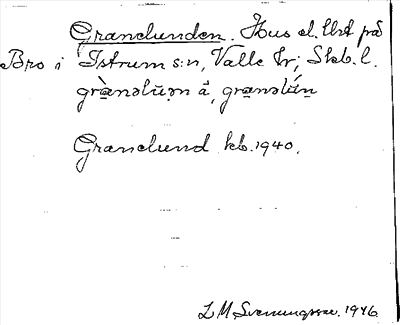 Granelunden. Hus el. lht på
Bro i Istrum s:n, Valle hr; Skb. l.
grànəlu̇n å, granəlún
Granelund kb. 1940.
L M Svenungsson. 1946